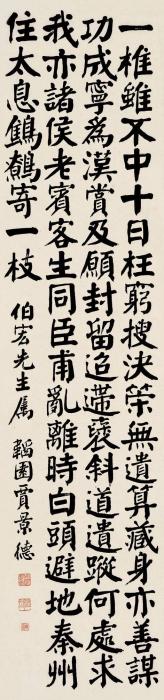 一椎雖不中十日枉窮搜決策無遺算藏身亦善謀
功成寧為漢賞及願封留迢遞褒斜道遺蹤何處求
我亦諸侯老賓客生同臣甫亂離時白頭避地秦州
住太息鷦鷯寄一枝
伯宏先生屬 韜園賈景德